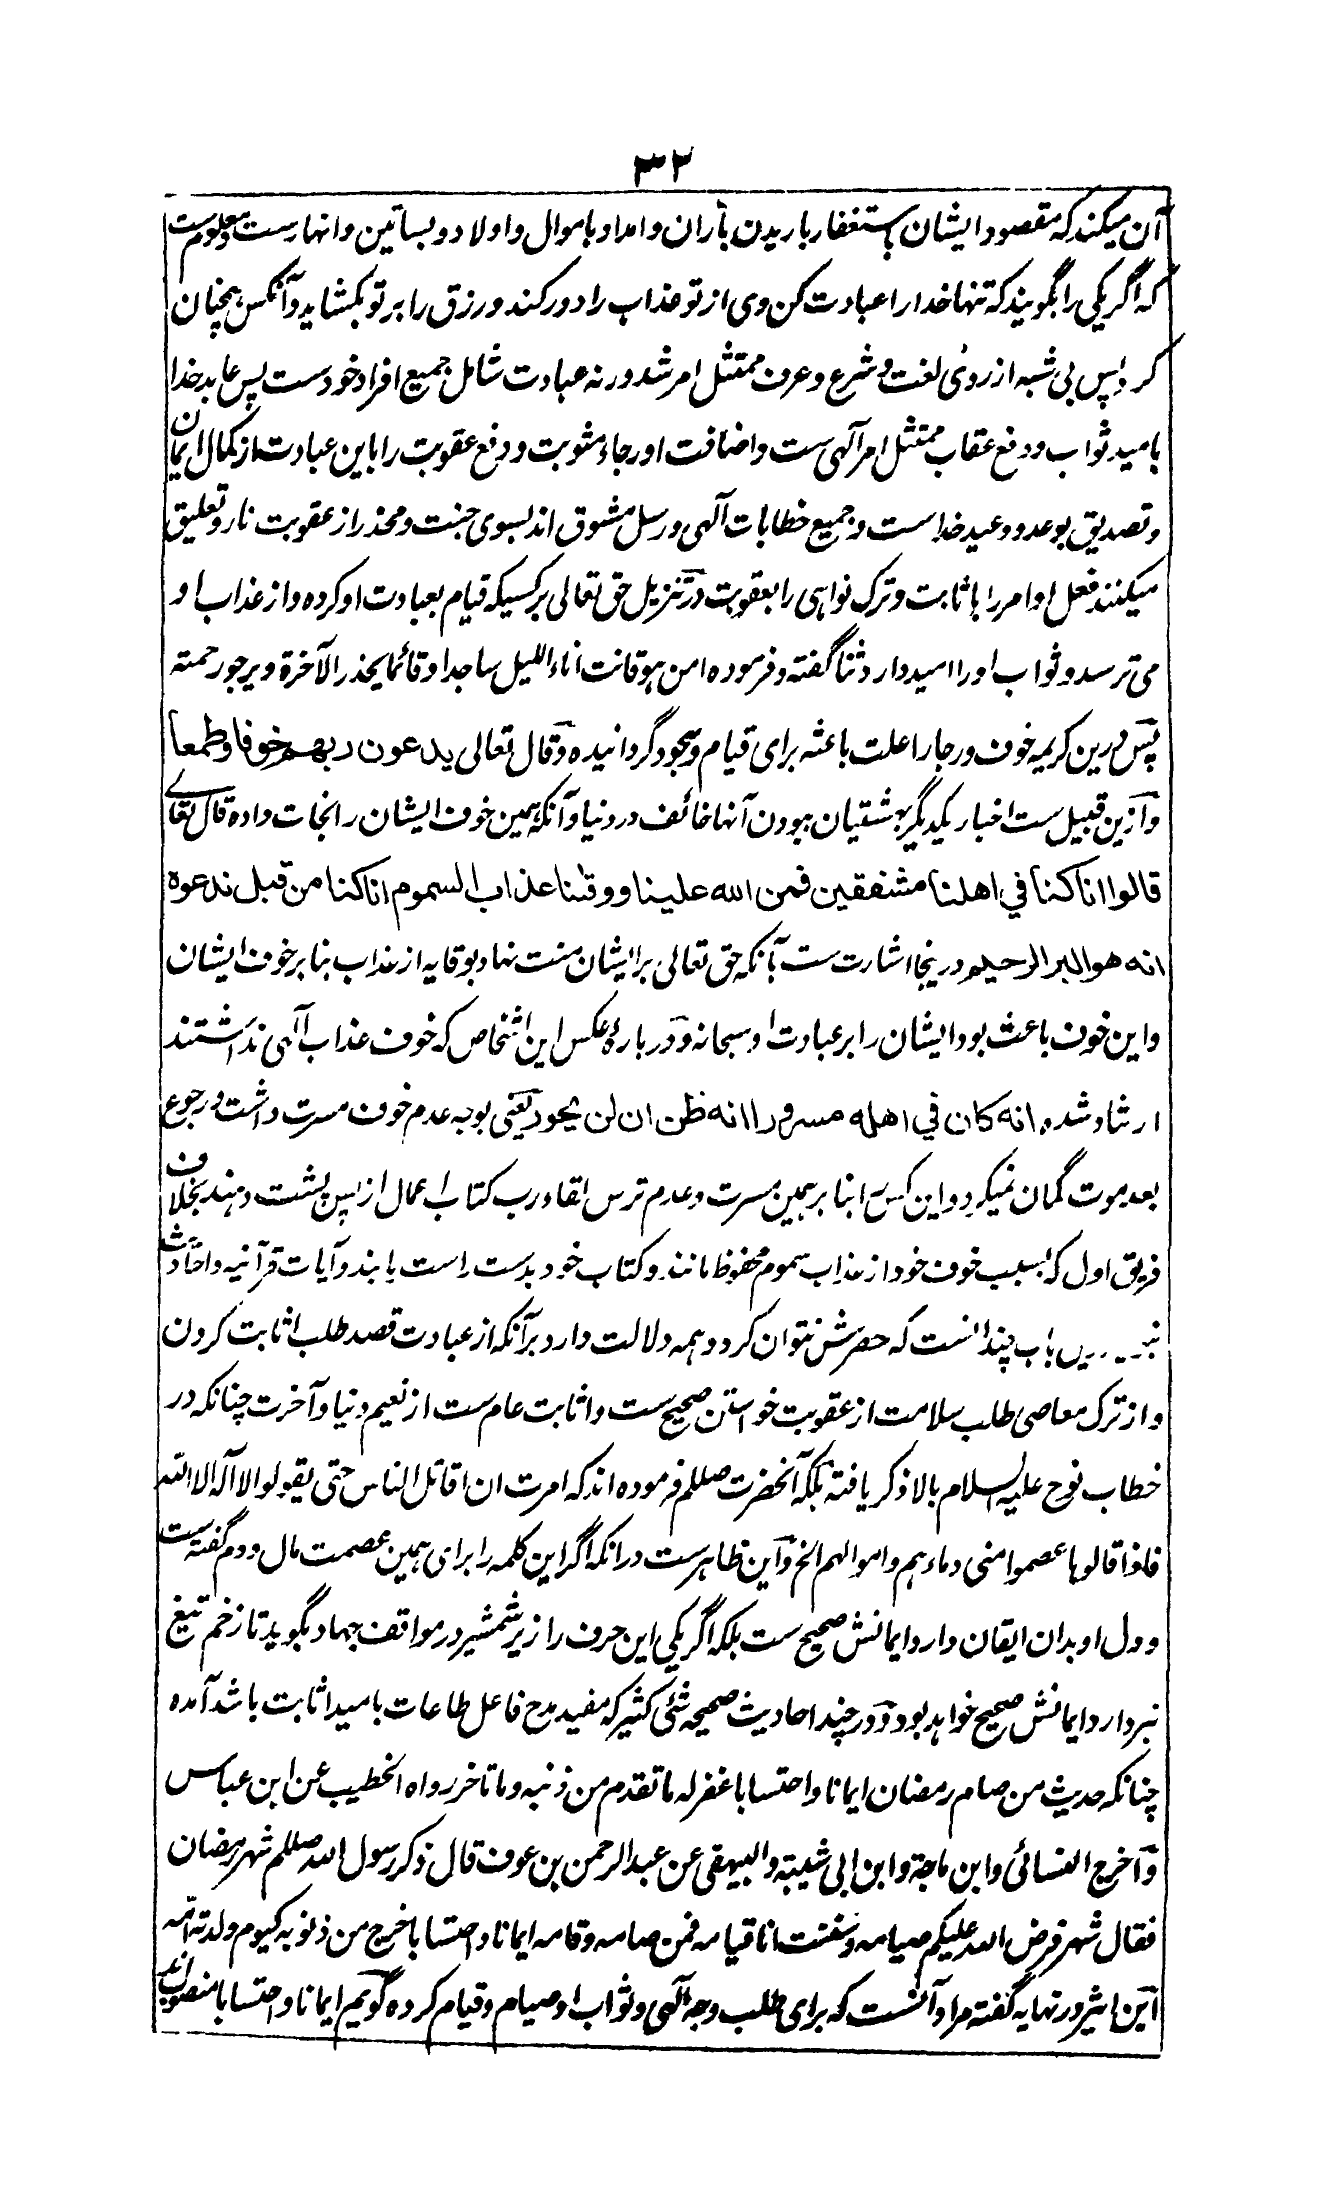 ۳۲
آن میکند که مقصود ایشان باستغفار باریدن باران و امداد باموال و اولاد و بساتین و انهارست و معلومست
که اگر یکی را بگویند که تنها خدا را عبادت کن وی از تو عذاب را دور کند و رزق را بر تو بکشاید و آنکس همچنان
کرد پس بی شبه از روی لغت و شرع و عرف ممتثل امر شد ورنه عبادت شامل جمیع افراد خودست پس عابد خدا
بامید ثواب و دفع عقاب ممتثل امر آلهی ست و اضافت او رجاء مثوبت و دفع عقوبت را باین عبادت از کمال ایمان
و تصدیق بوعد و وعید خداست و جمیع خطابات آلهی و رسل مشوق اند بسوی جنت و محذر از عقوبت نار و تعلیق
میکنند فعل اوامر را باثابت و ترک نواهی را بعقوبت و در تنزیل حق تعالی بر کسیکه قیام بعبادت او کرده و از عذاب او
می ترسد و ثواب او را امید دارد ثنا گفته و فرموده امن هو قانت اناء اللیل ساجدا و قائما یحذر الآخرة و یرجو رحمته
پس درین کریمه خوف و رجا را علت باعثه برای قیام و سجود گردانیده و قال تعالی یدعون ربهم خوفا وطمعا
و ازین قبیل ست اخبار یکدیگر بهشتیان ببودن آنها خائف در دنیا و آنکه همین خوف ایشان را نجات داده قال تعالے
قالوا انا کنا في اهلنا مشفقین فمن الله علینا ووقىنا عذاب السموم انا کنا من قبل ندعوه
انه هو البر الرحیم درینجا اشارت ست بآنکه حق تعالی بر ایشان منت نهاد بوقایه از عذاب بنا بر خوف ایشان
و این خوف باعث بود ایشان را بر عبادت او سبحانه و در بارۂ عکس این اشخاص که خوف عذاب آلهی نداشتند
ارشاد شده انه کان في اهله مسرورا انه ظن ان لن یحور یعنی بوجه عدم خوف مسرت داشت و رجوع
بعد موت گمان نمیکرد و این کس را بنا بر همین مسرت و عدم ترس لقاء رب کتاب اعمال از پس پشت دهند بخلاف
فریق اول که بسبب خوف خود از عذاب سموم محفوظ مانند و کتاب خود بدست راست یابند و آیات قرآنیه و احادیث
باب چندانست که حصرش نتوان کرد و همه دلالت دارد بر آنکه از عبادت قصد طلب اثابت کردن
و از ترک معاصی طلب سلامت از عقوبت خواستن صحیح ست و اثابت عام ست از نعیم دنیا و آخرت چنانکه در
خطاب نوح علیه السلام بالا ذکر یافته بلکه آنحضرت صللم فرموده اند که امرت ان اقاتل الناس حتی یقولوا لا اله الا الله
فاذا قالوها عصموا منی دماءهم و اموالهم الخ و این ظاهرست در آنکه اگر این کلمه را برای همین عصمت مال و دم گفته ست
و دل او بدان ایقان دارد ایمانش صحیح ست بلکه اگر یکی این حرف را زیر شمشیر در مواقف جهاد بگوید تا زخم تیغ
نبردارد ایمانش صحیح خواهد بود و در چند احادیث صحیحه شئی کثیر که مفید مدح فاعل طاعات بامید اثابت باشد آمده
چنانکه حدیث من صام رمضان ایمانا و احتسابا غفر له ما تقدم من ذنبه و ما تاخر رواه الخطیب عن ابن عباس
و اخرج النسائی و ابن ماجة و ابن ابی شیبة و البیهقی عن عبد الرحمن بن عوف قال ذکر رسول الله صللم شهر رمضان
فقال شهر فرض الله علیکم صیامه و سننت انا قیامه فمن صامه و قامه ایمانا و احتسابا خرج من ذنوبه کیوم ولدته امه
ابن اثیر در نهایه گفته مراد آنست که برای طلب وجه آلهی و ثواب او صیام و قیام کرده گویم ایمانا و احتسابا منصوب اند